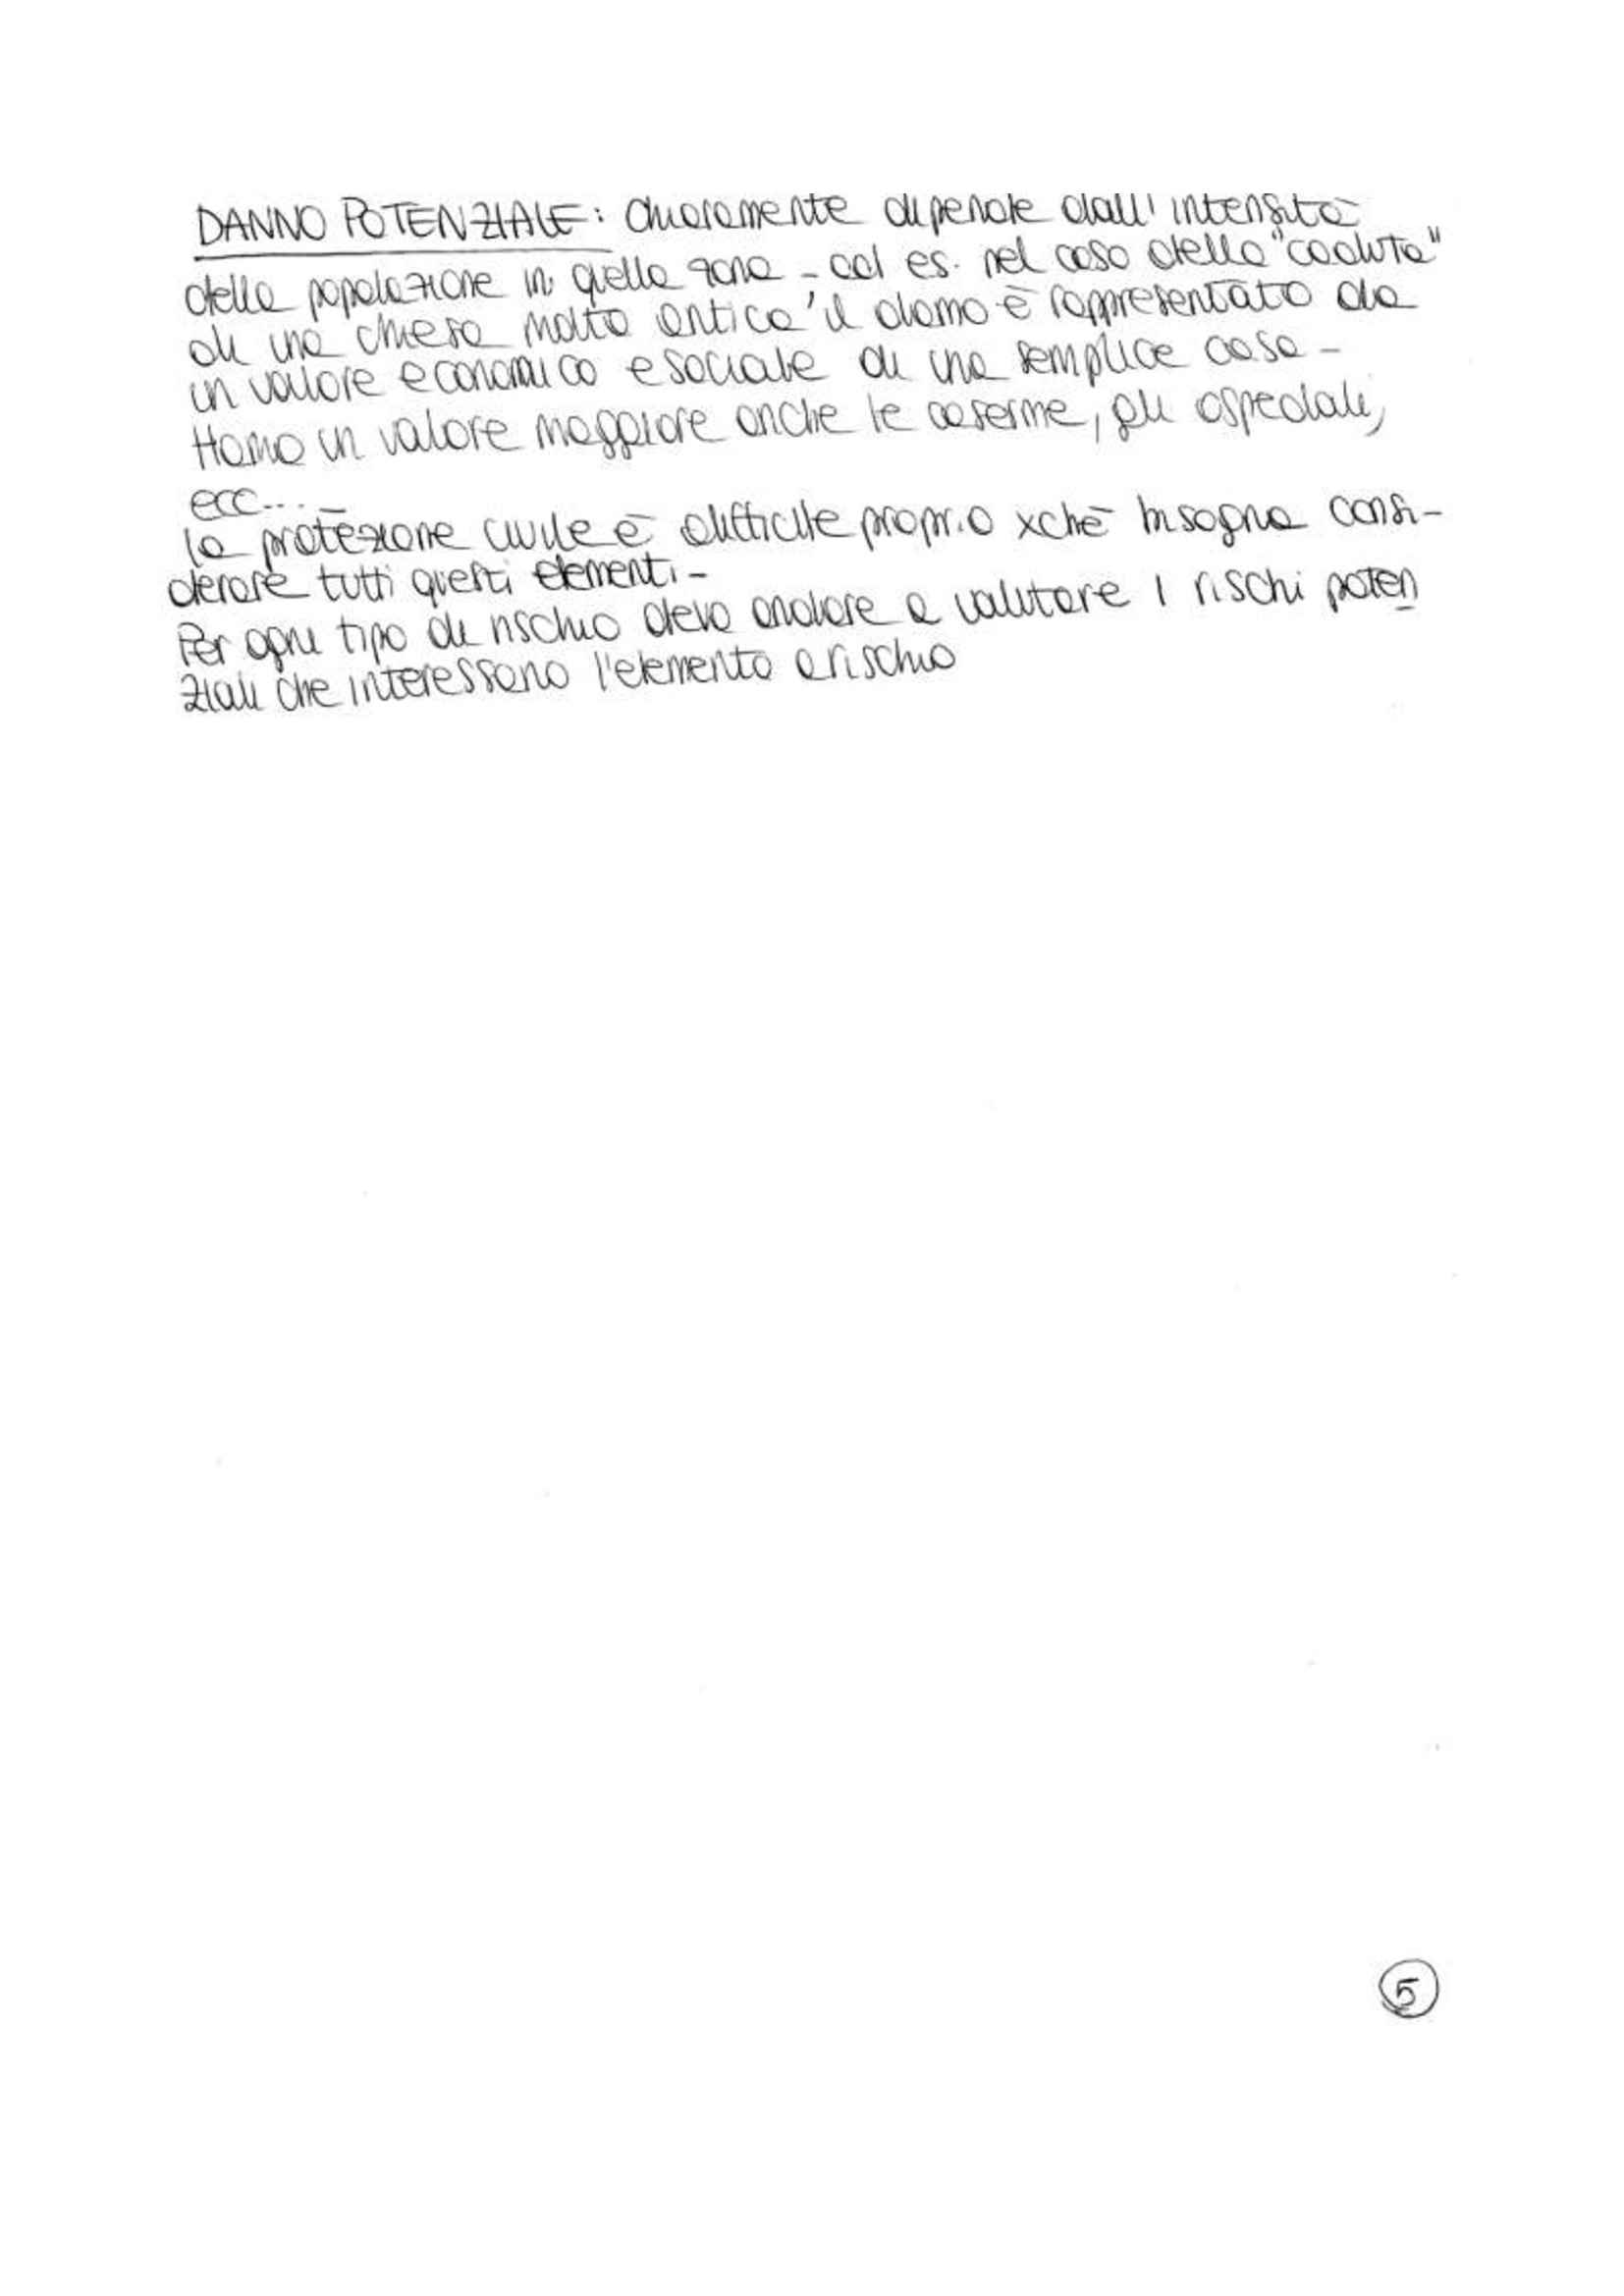 DANNO POTENZIALE: chiaramente dipende dall'intensità
della popolazione in quella zona - ad es. nel caso della "caduta"
di una chiesa molto antica il danno è rappresentato da
un valore economico e sociale di una semplice casa -
Hanno un valore maggiore anche le caserme, gli ospedali,
ecc...
la protezione civile è difficile proprio xchè bisogna consi-
derare tutti questi elementi -
Per ogni tipo di rischio devo andare a valutare i rischi poten
ziali che interessano l'elemento a rischio
5